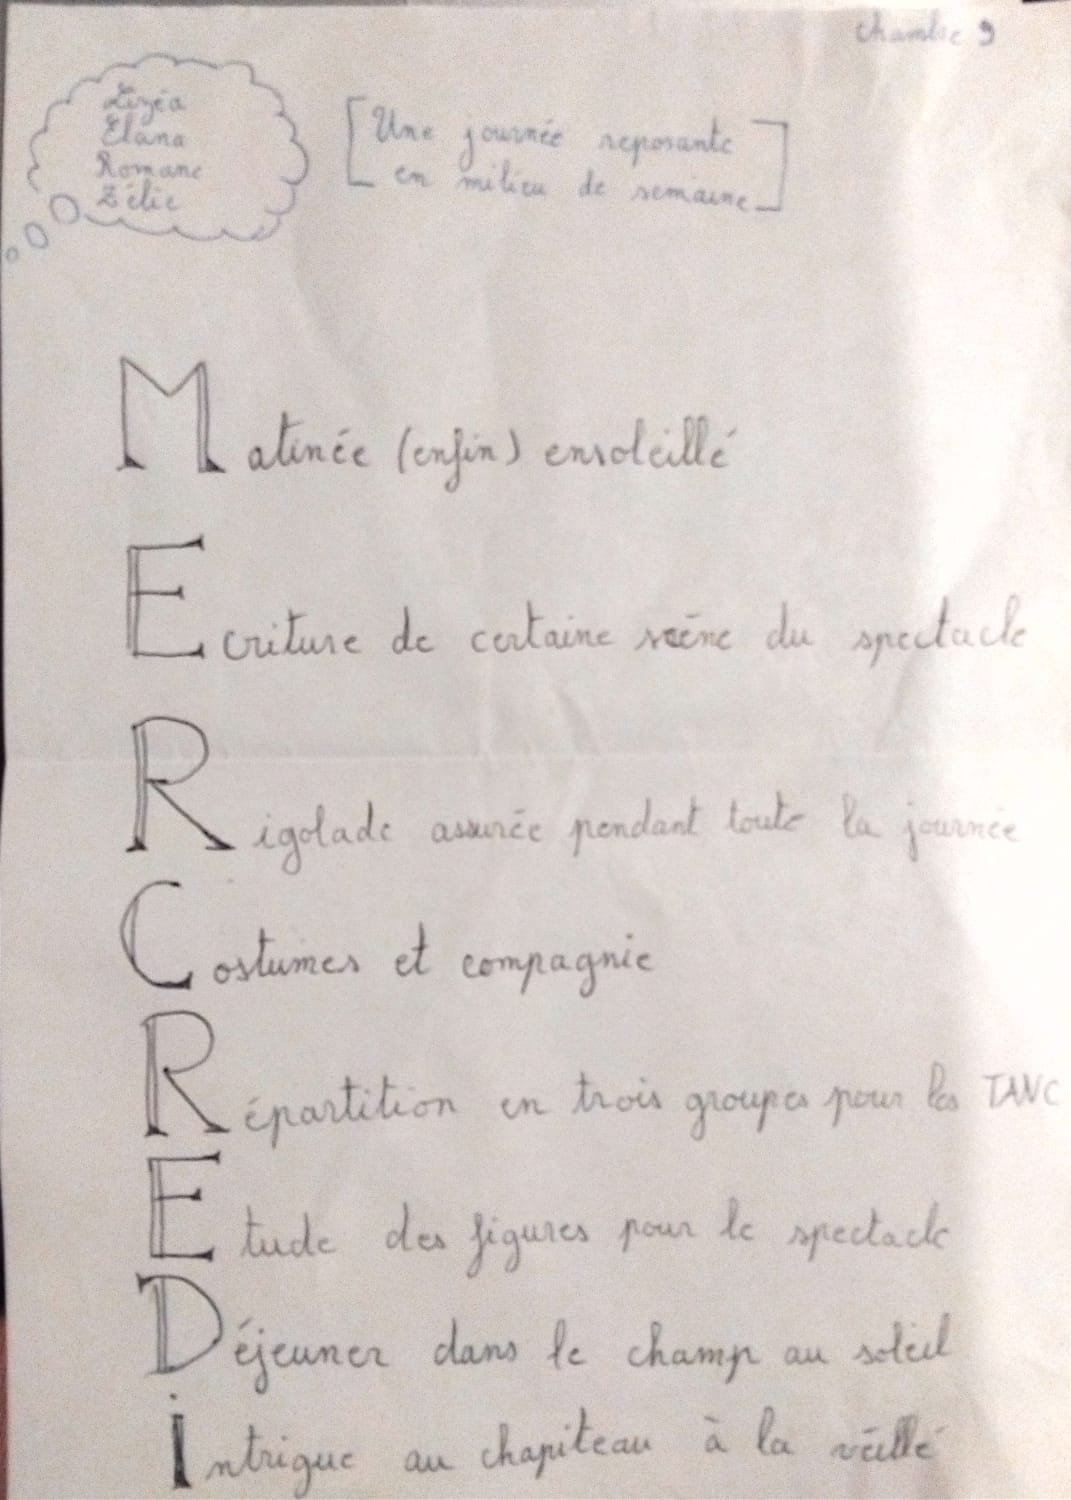 chambre 9
Lizéa
Elana
Romane
Zélie
[Une journée reposante
en milieu de semaine]
Matinée (enfin) ensoleillé
Ecriture de certaine scène du spectacle
Rigolade assurée pendant toute la journée
Costumes et compagnie
Répartition en trois groupes pour les TANC
Etude des figures pour le spectacle
Déjeuner dans le champ au soleil
intrigue au chapiteau à la veillé